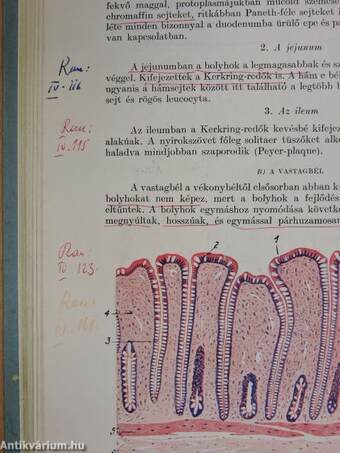 fekvő maggal, protoplasmájukban mucoid szemcsé
chromaffin sejteket, ritkábban Paneth-féle sejteket i
léte minden bizonnyal a duodenumba ürülő epe és pa
van kapcsolatban.
2. A jejunum
A jejunumban a bolyhok a legmagasabbak és sz
véggel. Kifejezettek a Kerkring-redők is. A hám e bél
ugyanis a hámsejtek között itt található a legtöbb l
sejt és rögös leucocyta.
3. Az ileum
Az ileumban a Kerkring-redők kevésbé kifejez
alakúak. A nyirokszövet főleg solitaer tüszőket alko
haladva mindjobban szaporodik (Peyer-plaque).
B) A VASTAGBÉL
A vastagbél a vékonybéltől elsősorban abban kü
bolyhokat nem képez, mert a bolyhok a fejlődés
eltűntek. A bolyhok egymáshoz nyomódása követke
megnyúltak, hosszúak, és egymással párhuzamosan
Ran:
IV. 116
Ran:
IV. 115
Ran:
IV. 123.
2
1
4
3
5
Antikvárium.hu